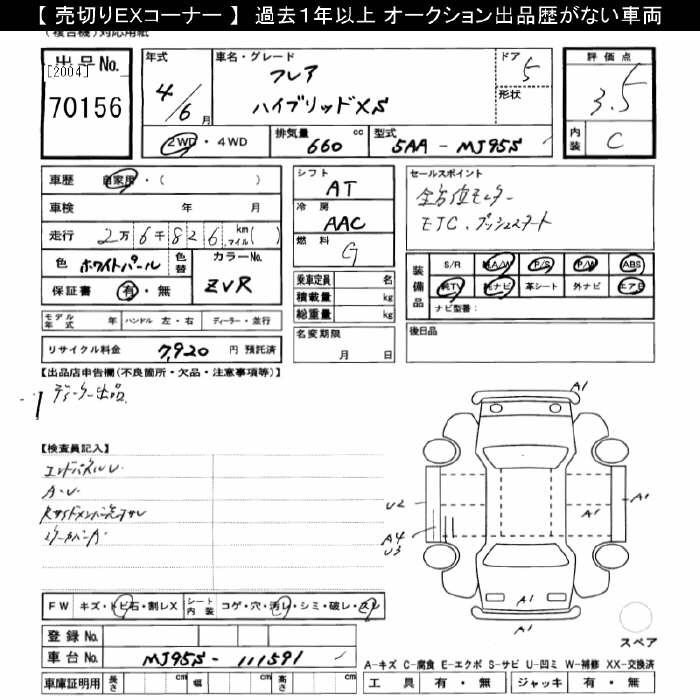 【 売切りEXコーナー 】 過去1年以上 オークション出品歴がない車両
(複合機)対応用紙
出品No.
[2004]
70156
年式
4/6月
車名・グレード
フレア
ハイブリッドXS
ドア
5
形状
評価点
3.5
内装
C
2WD・4WD
排気量 660 cc
型式 5AA - MJ95S
車歴 自家用・( )
車検 年 月
走行 2万6千826 km マイル( )
色 ホワイトパール
色替
カラーNo.
ZVR
保証書 有・無
シフト
AT
冷房
AAC
燃料
G
乗車定員 名
積載量 kg
総重量 kg
名変期限
月 日
セールスポイント
全方位モニター
ETC、プッシュスタート
装備品
S/R 純A/W P/S P/W ABS
純TV 純ナビ 革シート 外ナビ エアB
ナビ型番:
後日品
モデル年式 年 ハンドル 左・右 ディーラー・並行
リサイクル料金 7,920 円 預託済
【出品店申告欄(不良箇所・欠品・注意事項等)】
ディーラー出品
【検査員記入】
エンドパネルU
A・U
A1
A1
A1
A1
A1
A1
U2
A4
U3
FW キズ・トビ石・割レX
シート内装 コゲ・穴・汚レ・シミ・破レ・スレ
登録No.
車台No. MJ95S- 111591
車庫証明用 長さ cm 幅 cm 高さ cm
スペア
A-キズ C-腐食 E-エクボ S-サビ U-凹ミ W-補修 XX-交換済
工具 有・無 ジャッキ 有・無